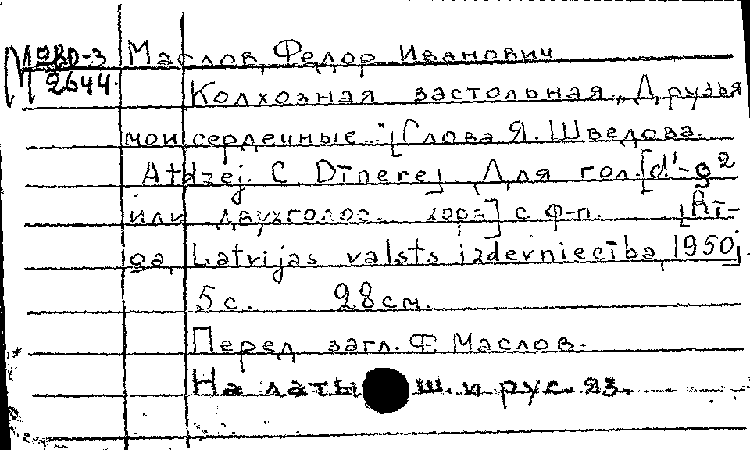 Маслов, Федор Иванович
2644
Колхозная застольная „Друзья
мои сердечные" [Слова Я. Шведова.
Atdzej. C. Dīnere] Для гол. [d'-g²
или двухголос. хора] с ф-п. [Rī-
ga, Latvijas valsts izdevniecība, 1950]
5 с. 28 см.
Перед загл. Ф. Маслов.
На латыш. и рус. яз.